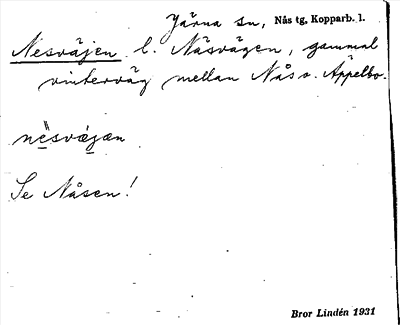 Järna sn, Nås tg, Kopparb. l.
Nesväjen l. Näsvägen, gammal
vinterväg mellan Nås o. Äppelbo.
nèsvægæn
Se Nåsen!
Bror Lindén 1931